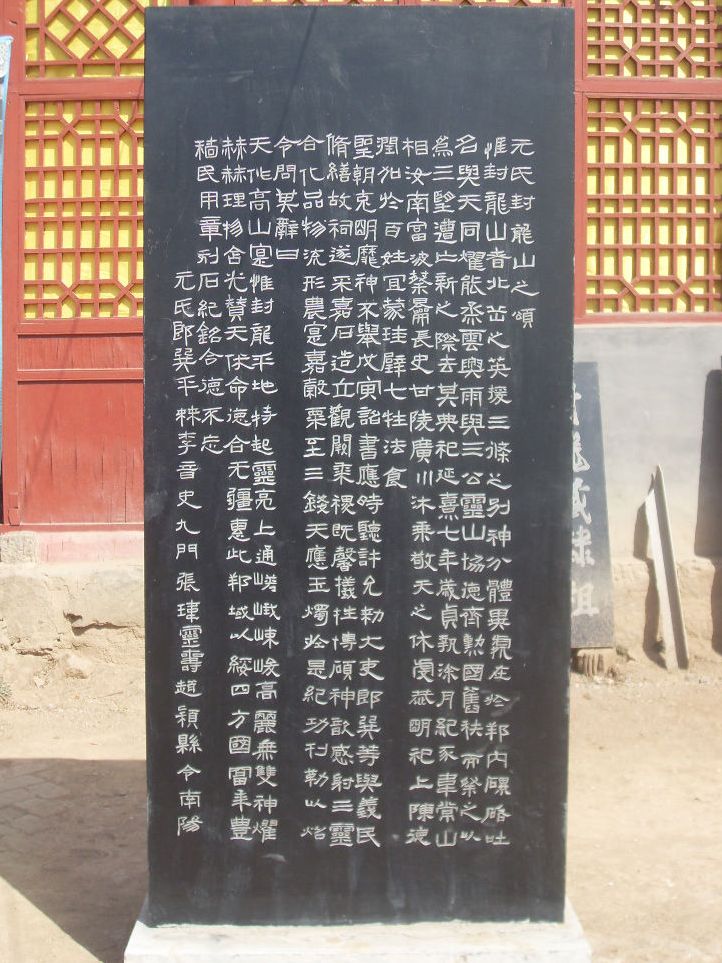 元氏封龍山之頌
惟封龍山者北岳之英援三條之別神分體異處在於邦內磥硌吐
名與天同燿能烝雲興雨與三公靈山協德齊勳國舊秩而祭之以
為三望遭亡新之際去其典祀延熹七年歲貞執涂月紀豕韋常山
相汝南富波蔡𪓰長史甘陵廣川沐乘敬天之休虔恭明祀上陳德
潤加於百姓宜蒙珪璧七牲法食
聖朝克明靡神不舉戊寅詔書應時聽許允勑大吏郎巽等與義民
脩繕故祠遂采嘉石造立觀闕黍稷既馨犧牲博碩神歆感射三靈
合化品物流形農寔嘉穀粟至三錢天應玉燭於是紀功刊勒以炤
令問其辭曰
天作高山寔惟封龍平地特起靈亮上通嵯峨崠峻高麗無雙神燿
赫赫理物含光贊天休命德合无疆惠此邦域以綏四方國富年豐
穡民用章刻石紀銘令德不忘
元氏郎巽平棘李音史九門張瑋靈壽趙穎縣令南陽